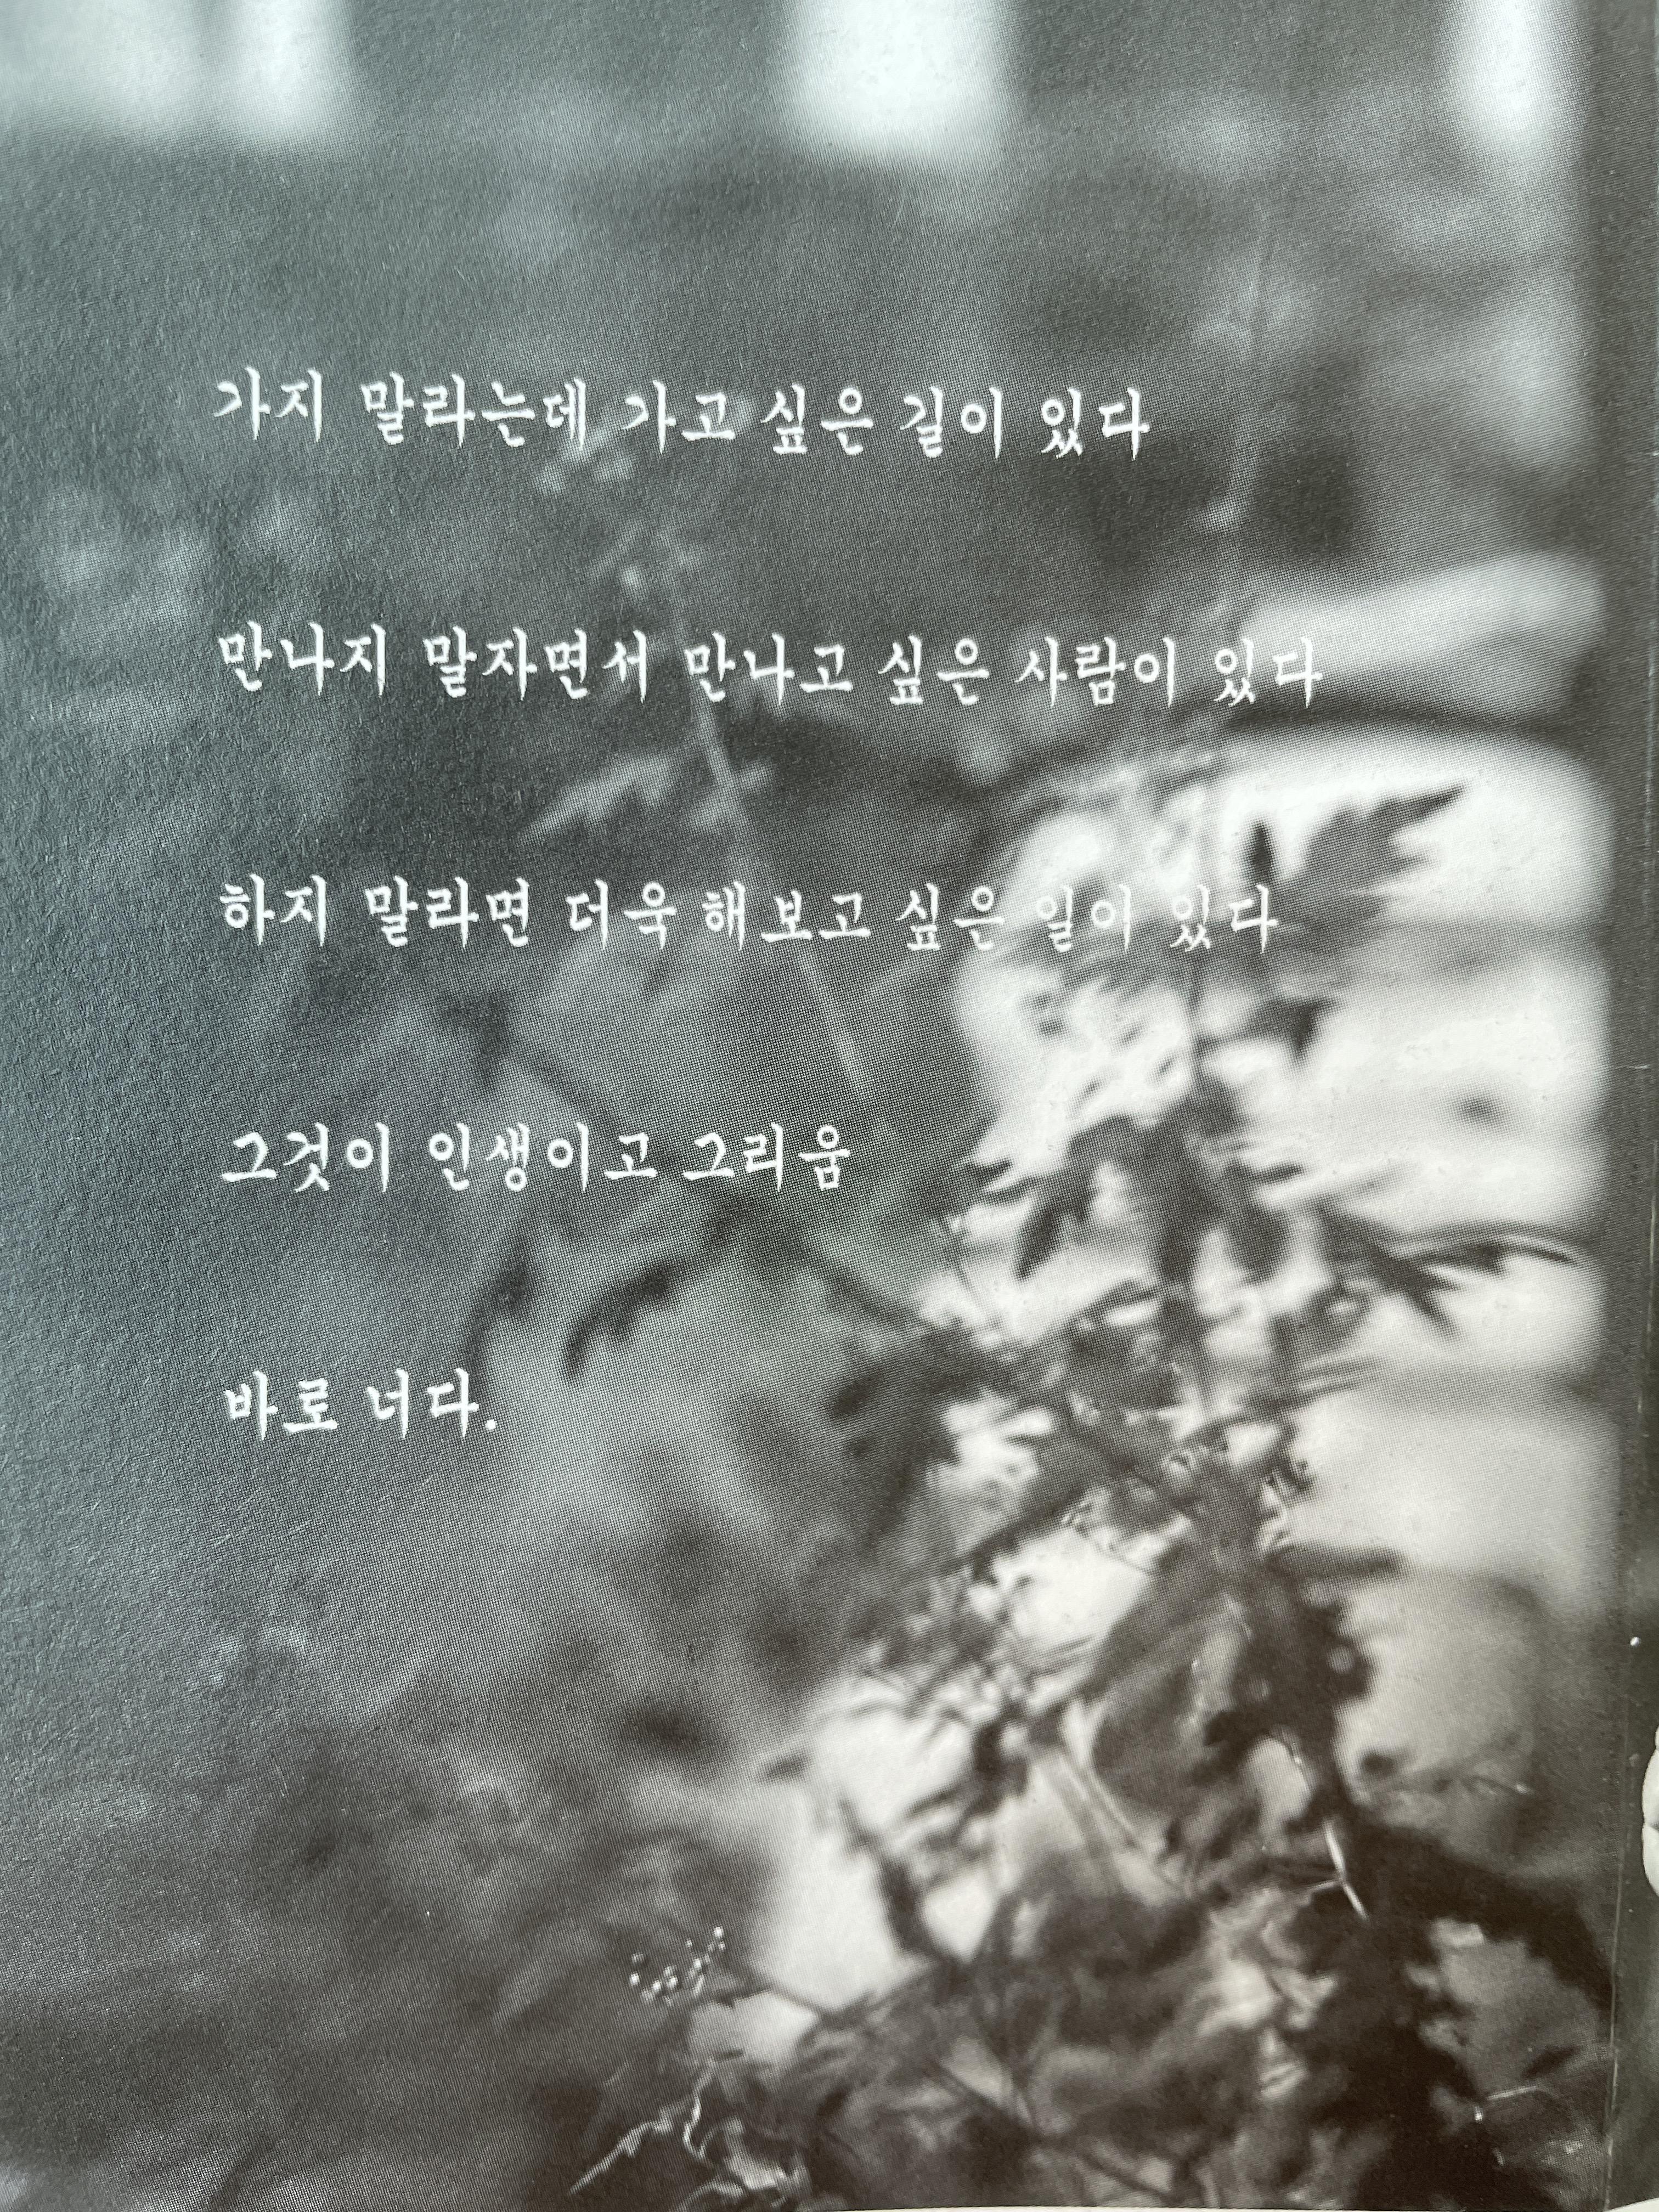 가지 말라는데 가고 싶은 길이 있다
만나지 말자면서 만나고 싶은 사람이 있다
하지 말라면 더욱 해보고 싶은 일이 있다
그것이 인생이고 그리움
바로 너다.